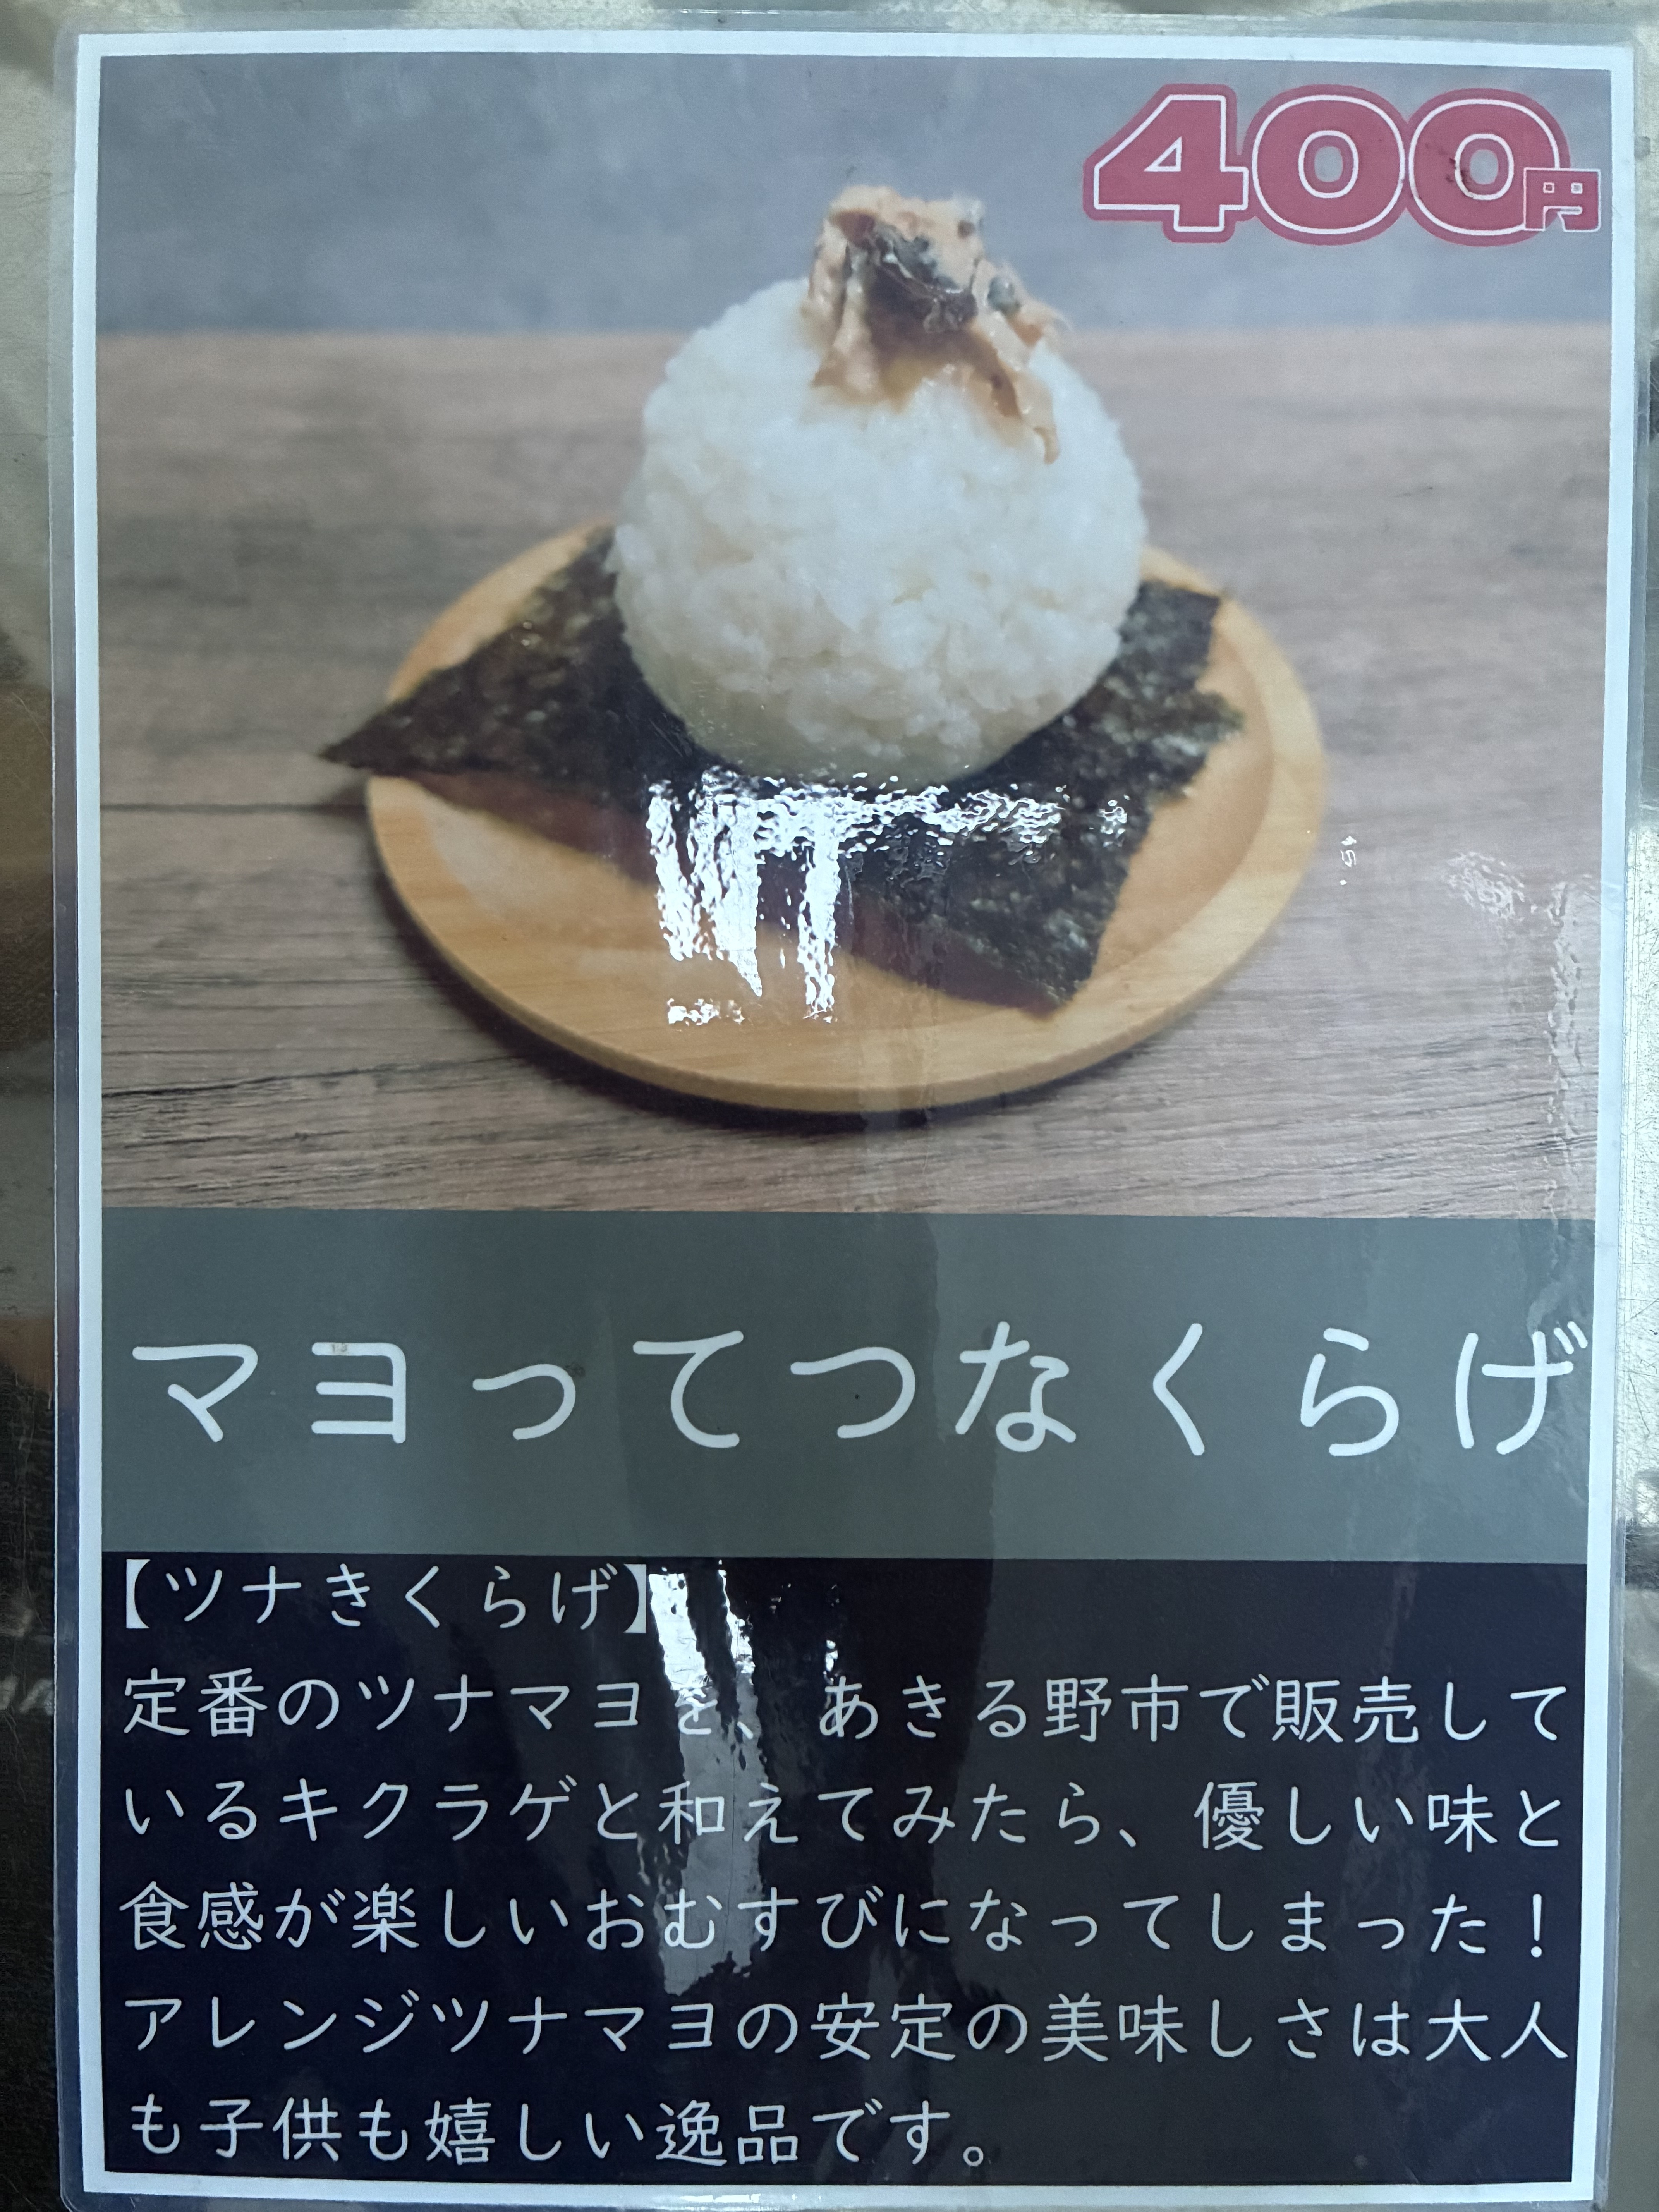 400円
マヨってつなくらげ
【ツナきくらげ】
定番のツナマヨを、あきる野市で販売して
いるキクラゲと和えてみたら、優しい味と
食感が楽しいおむすびになってしまった！
アレンジツナマヨの安定の美味しさは大人
も子供も嬉しい逸品です。